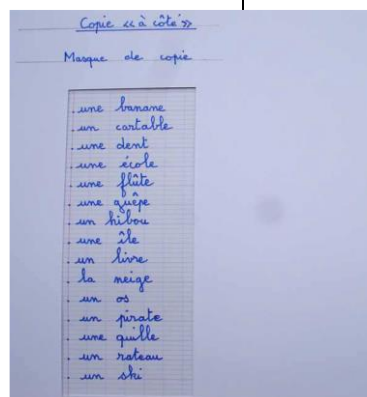 Copie «« à côté »»
Masque de copie
. une banane
. un cartable
. une dent
. une école
. une flûte
. une guêpe
. un hibou
. une île
. un livre
. la neige
. un os
. un pirate
. une quille
. un rateau
. un ski